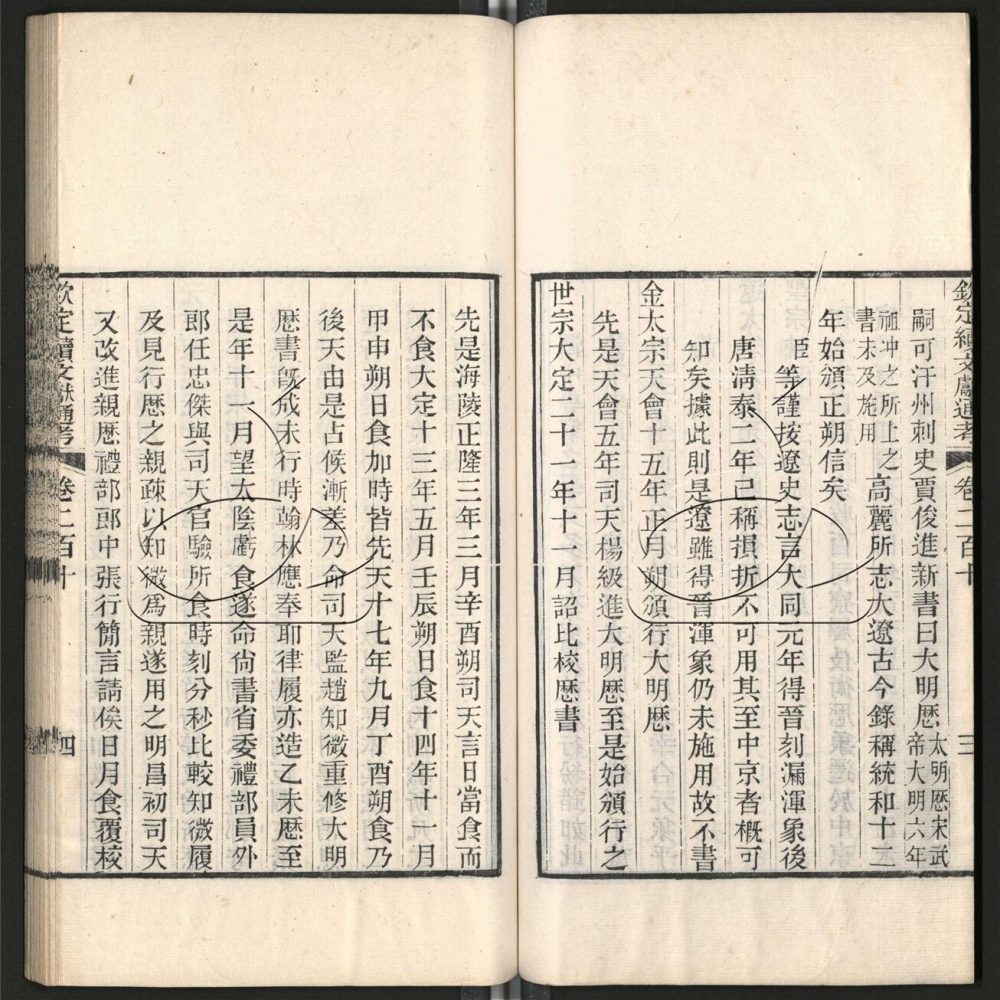 欽定續文獻通考 卷二百十 三
嗣可汗州刺史賈俊進新書曰大明厯太明厯宋武帝大明六年
祖冲之所上之書未及施用 高麗所志大遼古今錄稱統和十三
年始頒正朔信矣
臣等謹按遼史志言大同元年得晉刻漏渾象後
唐清泰二年已稱損折不可用其至中京者概可
知矣據此則是遼雖得晉渾象仍未施用故不書
金太宗天會十五年正月朔頒行大明厯
先是天會五年司天楊級進大明厯至是始頒行之
世宗大定二十一年十一月詔比校厯書
先是海陵正隆三年三月辛酉朔司天言日當食而
不食大定十三年五月壬辰朔日食十四年十一月
甲申朔日食加時皆先天十七年九月丁酉朔食乃
後天由是占候漸差乃命司天監趙知微重修大明
厯書旣成未行時翰林應奉耶律履亦造乙未厯至
是年十一月望太陰虧食遂命尙書省委禮部員外
郎任忠傑與司天官驗所食時刻分秒比較知微履
及見行厯之親疎以知微爲親遂用之明昌初司天
又改進親厯禮部郎中張行簡言請俟日月食覆校
欽定續文獻通考 卷二百十 四